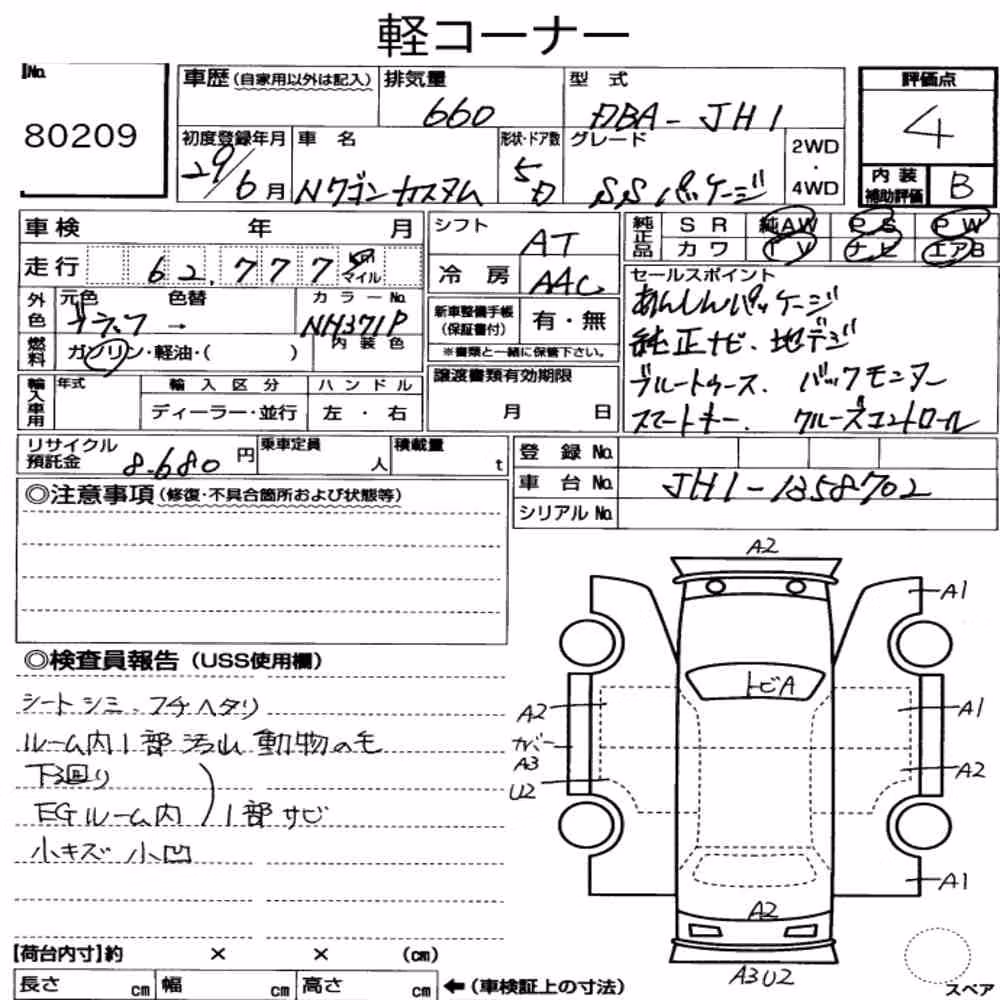 軽コーナー
No. 80209
車歴 (自家用以外は記入) 排気量 660 型式 DBA-JH1
評価点 4
初度登録年月 29/6月 車名 Nワゴンカスタム 形状・ドア数 5D グレード SSパッケージ 2WD・4WD
内装補助評価 B
車検 年 月
走行 62,777 km マイル
外色 元色 ブラック → 色替 カラーNo. NH371P
燃料 ガソリン・軽油・( ) 内装色
シフト AT
冷房 AAC
新車整備手帳 (保証書付) 有・無
※書類と一緒に保管下さい。
純正品 SR 純AW PS PW
カワ TV ナビ エアB
セールスポイント
あんしんパッケージ
純正ナビ、地デジ
ブルートゥース、バックモニター
スマートキー、クルーズコントロール
輸入車用 年式 輸入区分 ハンドル
ディーラー・並行 左・右
譲渡書類有効期限
月 日
リサイクル預託金 8,680円 乗車定員 人 積載量 t
登録No.
車台No. JH1-1358702
シリアルNo.
◎注意事項 (修復・不具合箇所および状態等)
◎検査員報告 (USS使用欄)
シートシミ、フチヘタリ
ルーム内1部汚れ 動物の毛
下廻り
EGルーム内 ) 1部サビ
小キズ 小凹
A2
A1
トビA
A2
A1
カバー
A3
A2
U2
A1
A2
A3U2
スペア
[荷台内寸] 約 × × (cm)
長さ cm 幅 cm 高さ cm ←(車検証上の寸法)